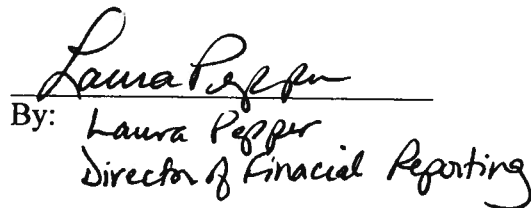 Laura Pepper
By:
Laura Pepper
Director of Finacial Reporting